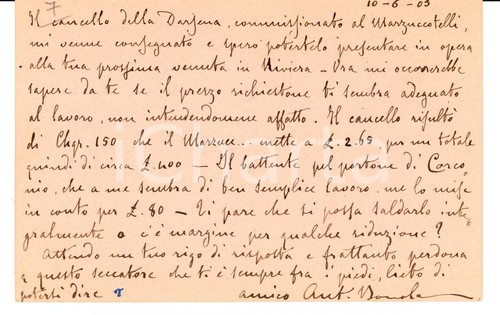 7
10-6-05
Il cancello della Darsena, commissionato al Marzuccotelli,
mi venne consegnato e spero potertelo presentare in opera
alla tua prossima venuta in Riviera - Ora mi occorrerebbe
sapere da te se il prezzo richiestone ti sembra adeguato
al lavoro, non intendendomene affatto. Il cancello risultò
di Chgr. 150 che il Marzucc... mette a £. 2.65, per un totale
quindi di circa £. 400 - Il battente pel portone di Corco-
nio, che a me sembra di ben semplice lavoro, me lo mise
in conto per £. 80 - Ti pare che si possa saldarlo inte-
gralmente o c'è margine per qualche riduzione?
Attendo un tuo rigo di risposta e frattanto perdona
a questo seccatore che ti è sempre fra i piedi, lieto di
potersi dire amico Ant. Bonola